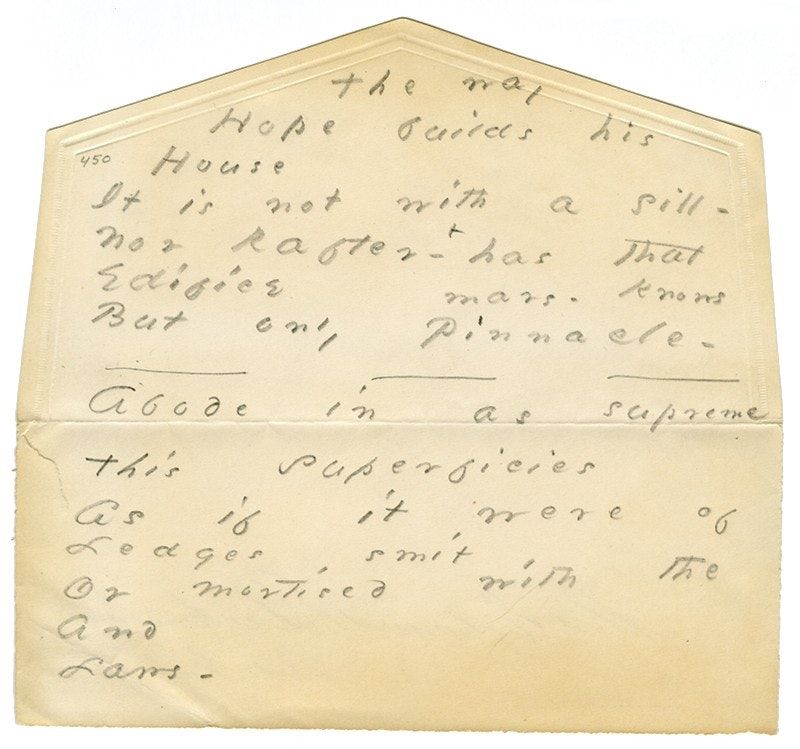 the way
Hope builds his
450 House
It is not with a sill -
Nor Rafter - + has that
Edifice mars - knows
But only Pinnacle -
Abode in as supreme
this superficies
As if it were of
Ledges smit
Or mortised with the
And
Laws -